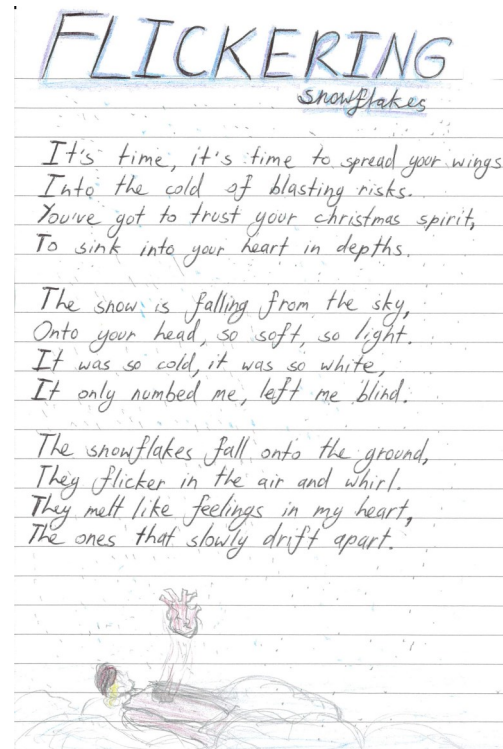 FLICKERING
snowflakes
It's time, it's time to spread your wings
Into the cold of blasting risks.
You've got to trust your christmas spirit,
To sink into your heart in depths.
The snow is falling from the sky,
Onto your head, so soft, so light.
It was so cold, it was so white,
It only numbed me, left me blind.
The snowflakes fall onto the ground,
They flicker in the air and whirl.
They melt like feelings in my heart,
The ones that slowly drift apart.